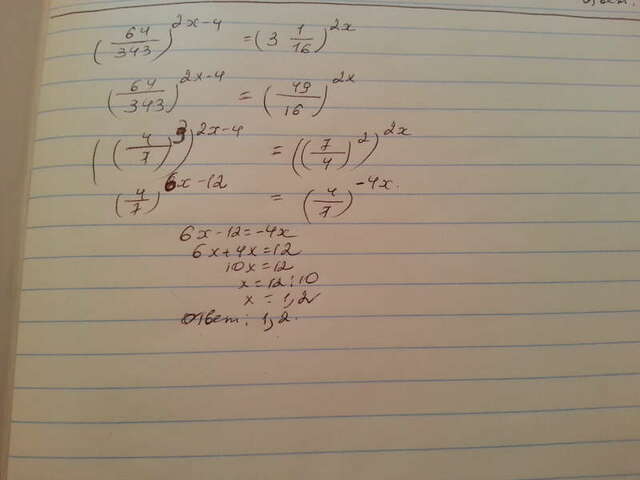 Ответ:
(64/343)^2x-4 = (3 1/16)^2x
(64/343)^2x-4 = (49/16)^2x
((4/7)^3)^2x-4 = ((7/4)^2)^2x
(4/7)^6x-12 = (4/7)^-4x.
6x-12=-4x
6x+4x=12
10x=12
x=12:10
x = 1,2
Ответ: 1,2.